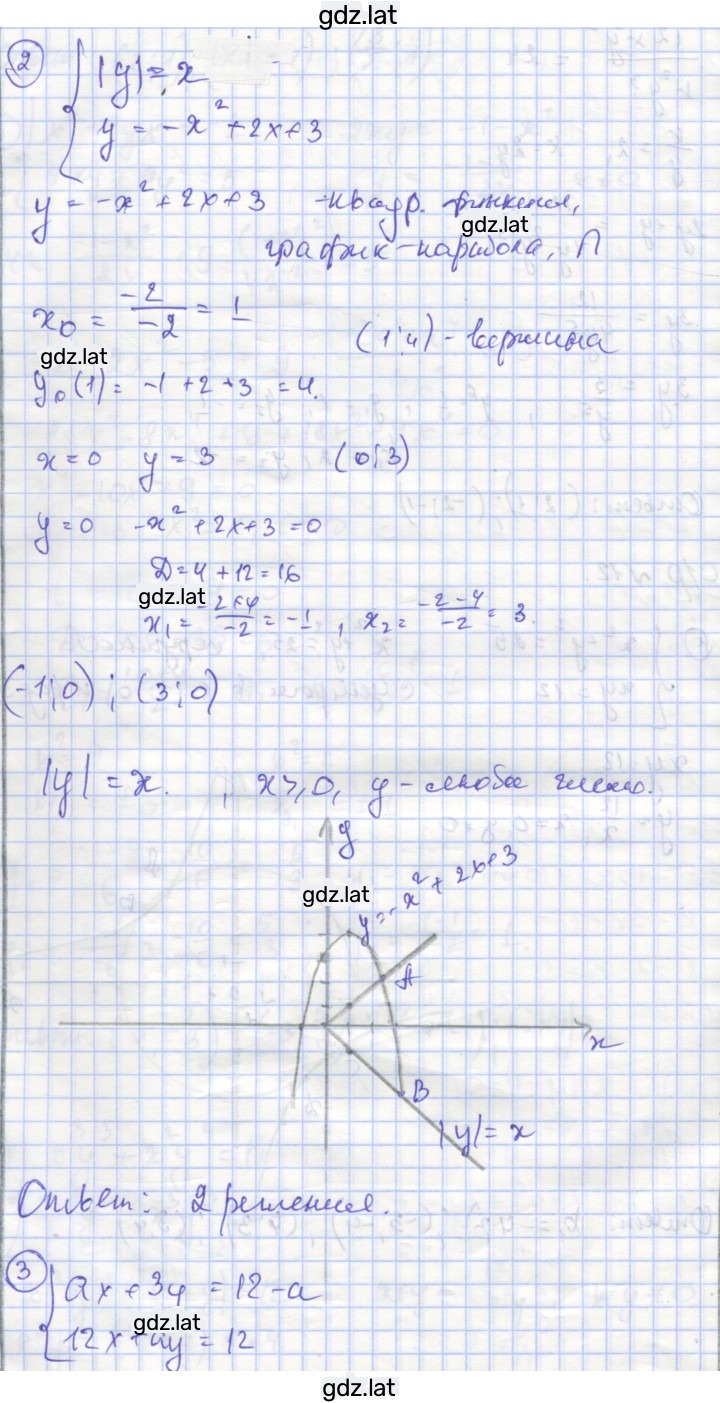 gdz.lat
2 { |y| = x
y = -x² + 2x + 3
y = -x² + 2x + 3 - квадр. функция,
gdz.lat
график - парабола, ∩
x₀ = -2/-2 = 1
(1; 4) - вершина
gdz.lat
y₀(1) = -1 + 2 + 3 = 4.
x = 0 y = 3 (0; 3)
y = 0 -x² + 2x + 3 = 0
D = 4 + 12 = 16
gdz.lat
x₁ = -2+4/-2 = -1, x₂ = -2-4/-2 = 3.
(-1; 0); (3; 0)
|y| = x. , x ≥ 0, y - любое число.
y
gdz.lat
y = -x² + 2x + 3
A
x
B
|y| = x
Ответ: 2 решения.
3 { ax + 3y = 12 - a
gdz.lat
12x + ay = 12
gdz.lat